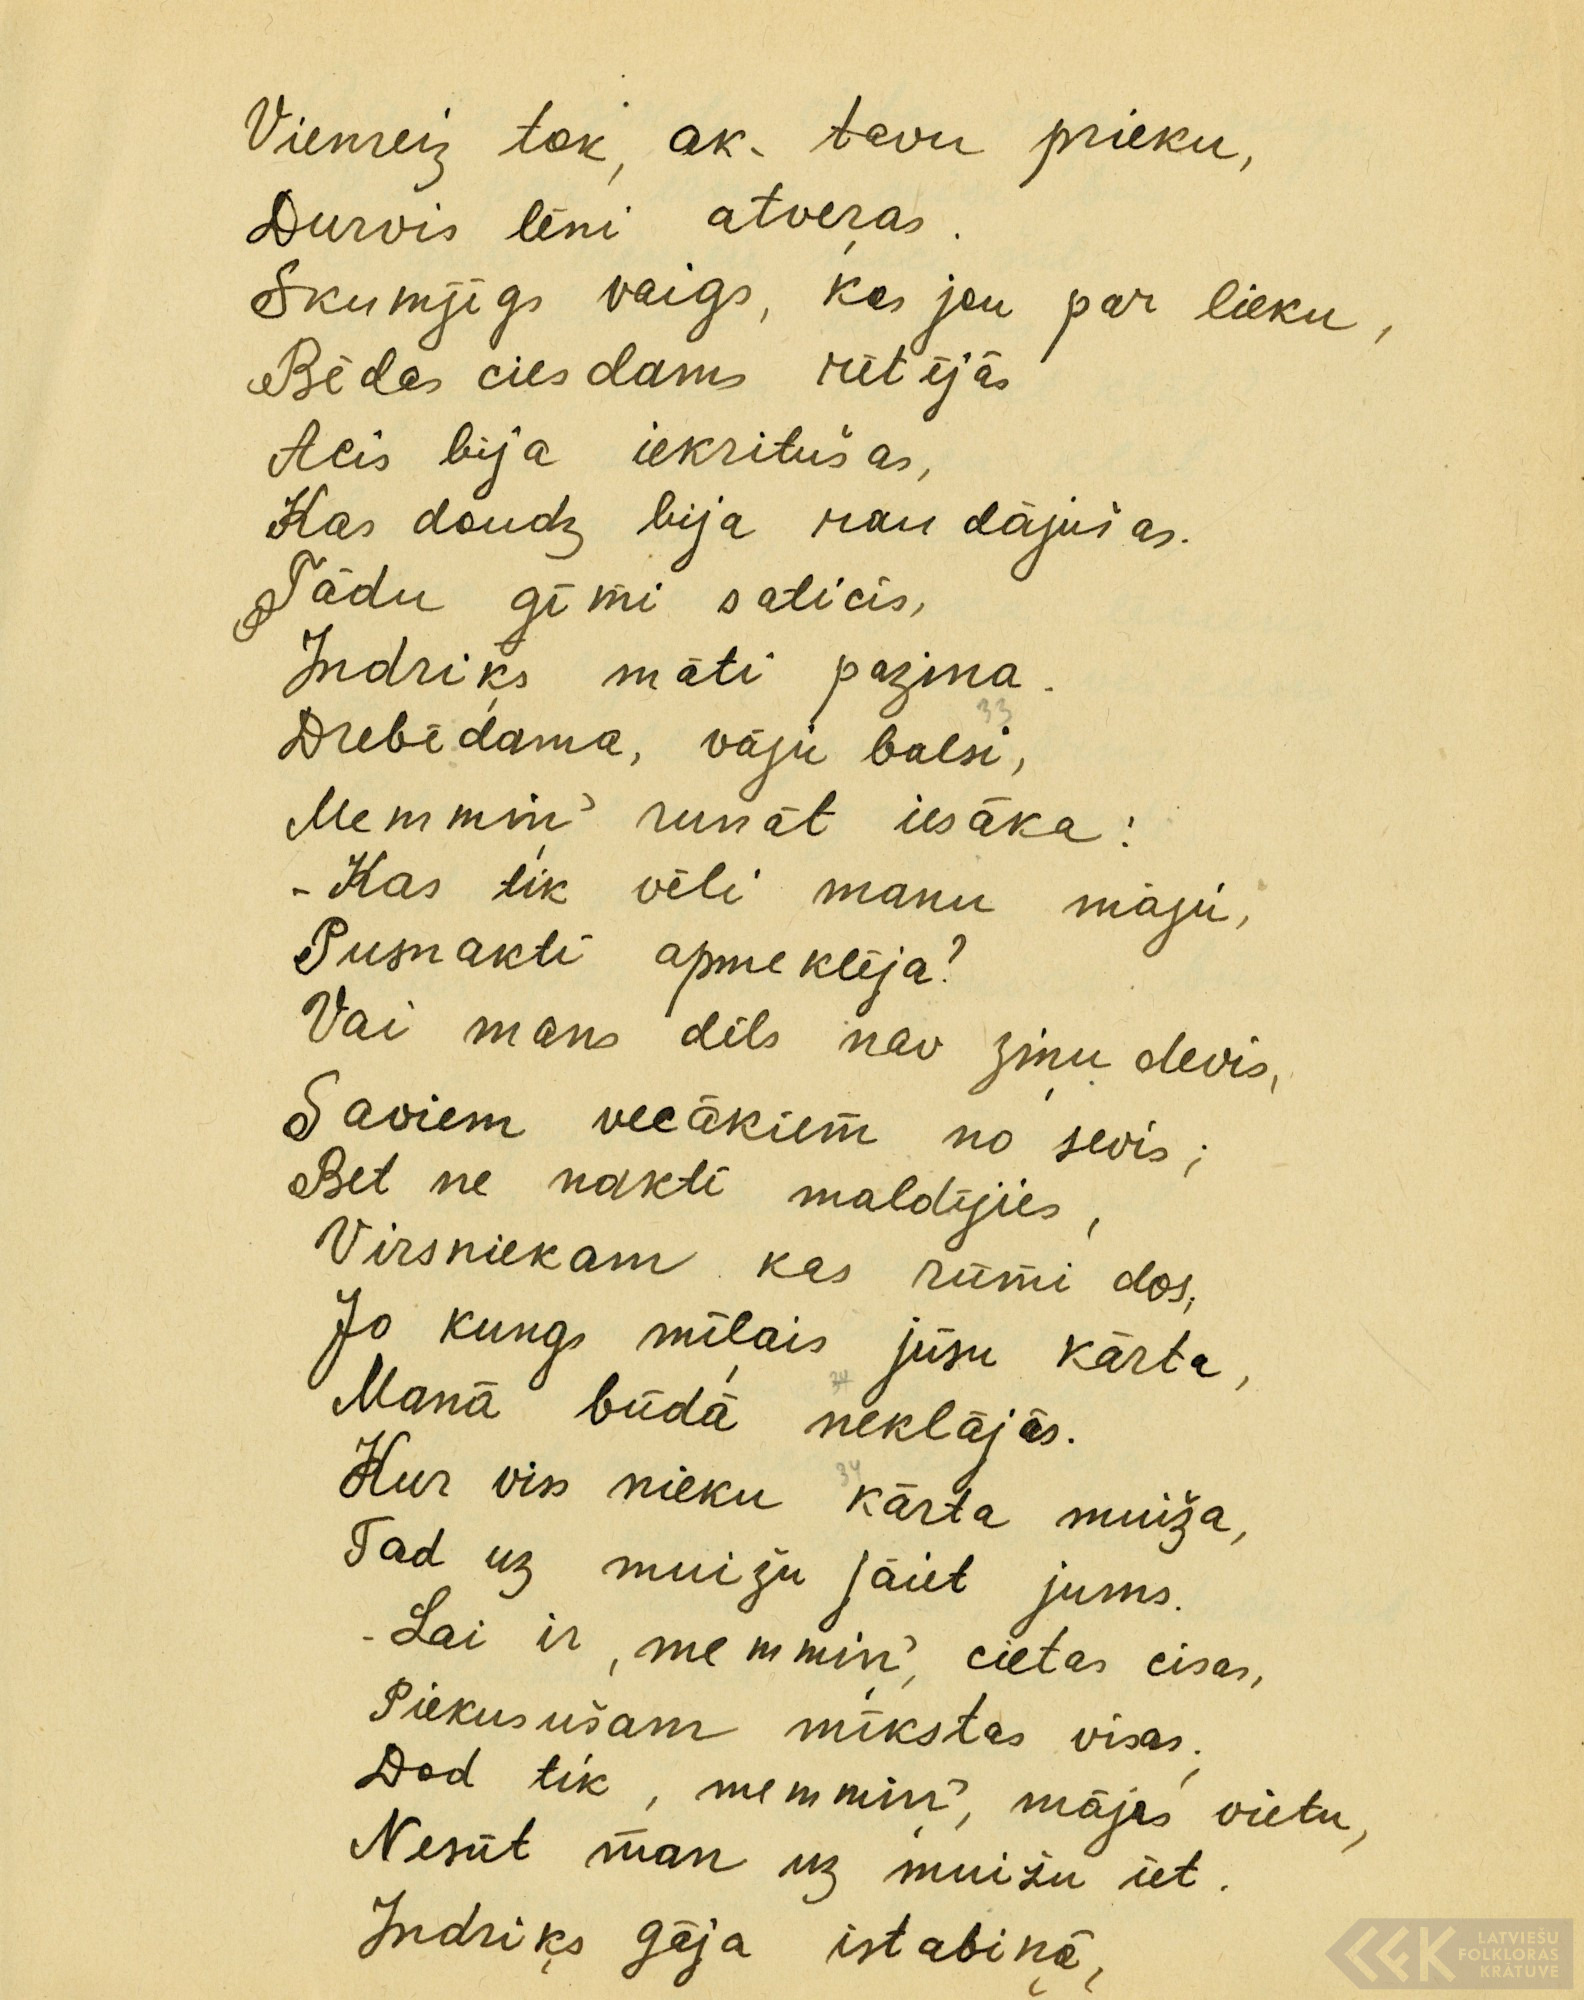 Vienreiz tok, ak- tavu prieku,
Durvis lēni atveŗas.
Skumjīgs vaigs, kas jau par lieku,
Bēdas ciesdams rētējās
Acis bija iekritušas,
Kas daudz bija raudājušas.
Tādu ģīmi saticis,
Indriķs māti pazina.
33
Drebēdama, vāju balsi,
Memmiņ' runāt iesāka:
-Kas tik vēli manu māju,
Pusnaktī apmeklēja?
Vai mans dēls nav ziņu devis,
Saviem vecākiem no sevis;
Bet ne naktī maldījies,
Virsniekam kas rūmi dos,
Jo kungs mīļais jūsu kārta,
Manā būdā neklājās.
34
Kur virsnieku kārta muiža,
Tad uz muižu jāiet jums.
-Lai ir, memmiņ', cietas cisas,
Piekusušam mīkstas visas,
Dod tik, memmiņ', mājas vietu,
Nesūt man uz muižu iet.
Indriķs gāja istabiņā,
LATVIEŠU
FOLKLORAS
KRĀTUVE